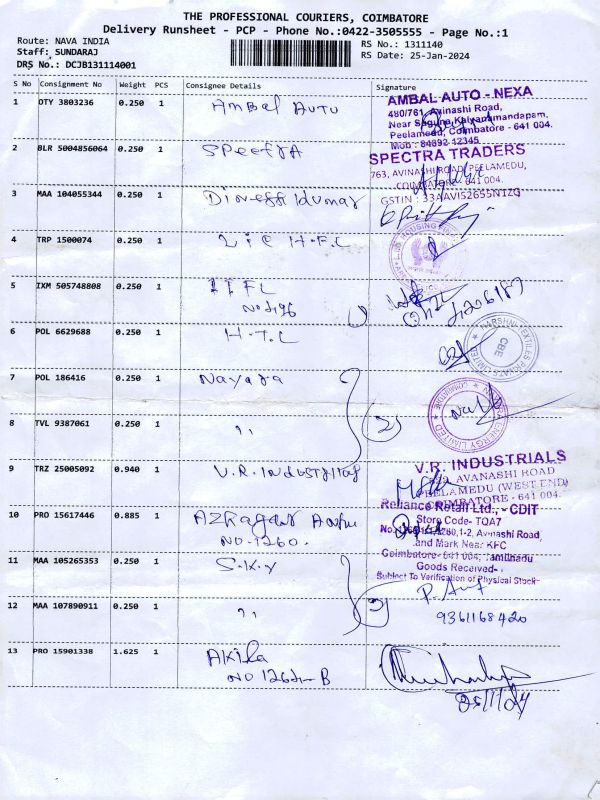 THE PROFESSIONAL COURIERS, COIMBATORE
Delivery Runsheet - PCP - Phone No.:0422-3505555 - Page No.:1
Route: NAVA INDIA
RS No.: 1311140
Staff: SUNDARAJ
RS Date: 25-Jan-2024
DRS No.: DCJB131114001
S No Consignment No Weight PCS Consignee Details Signature
1 OTY 3803236 0.250 1 AMBAL AUTO
AMBAL AUTO - NEXA
480/761, Avinashi Road,
Near Kalyanamandapam,
Peelamedu, Coimbatore - 641 004.
Mob : 84892 12345
2 BLR 5004856064 0.250 1
SPECTRA TRADERS
763, AVINASHI ROAD, PEELAMEDU,
COIMBATORE - 641 004.
GSTIN : 33AAVIS2655N1ZG
3 MAA 104055344 0.250 1 Dineshkumar
4 TRP 1500074 0.250 1 LIC H.F.L
5 IXM 505748808 0.250 1 IIFL
6 POL 6629688 0.250 1 H.T.L
CBE
7 POL 186416 0.250 1 Nayara
8 TVL 9387061 0.250 1 ,, 2
ENERGY LIMITED
9 TRZ 25005092 0.940 1 V.R. Industries
V.R. INDUSTRIALS
AVANASHI ROAD
PEELAMEDU (WEST END)
COIMBATORE - 641 004.
10 PRO 15617446 0.885 1
NO.1260.
Reliance Retail Ltd., - CDIT
Store Code- TQA7
Avinashi Road,
and Mark Near KFC
Coimbatore- 641 004, Tamilnadu
Goods Received-
Subject To Verification of Physical Stock
11 MAA 105265353 0.250 1 S.K.Y
12 MAA 107890911 0.250 1 ,,
9361168420
13 PRO 15901338 1.625 1 Akila
25/1/24